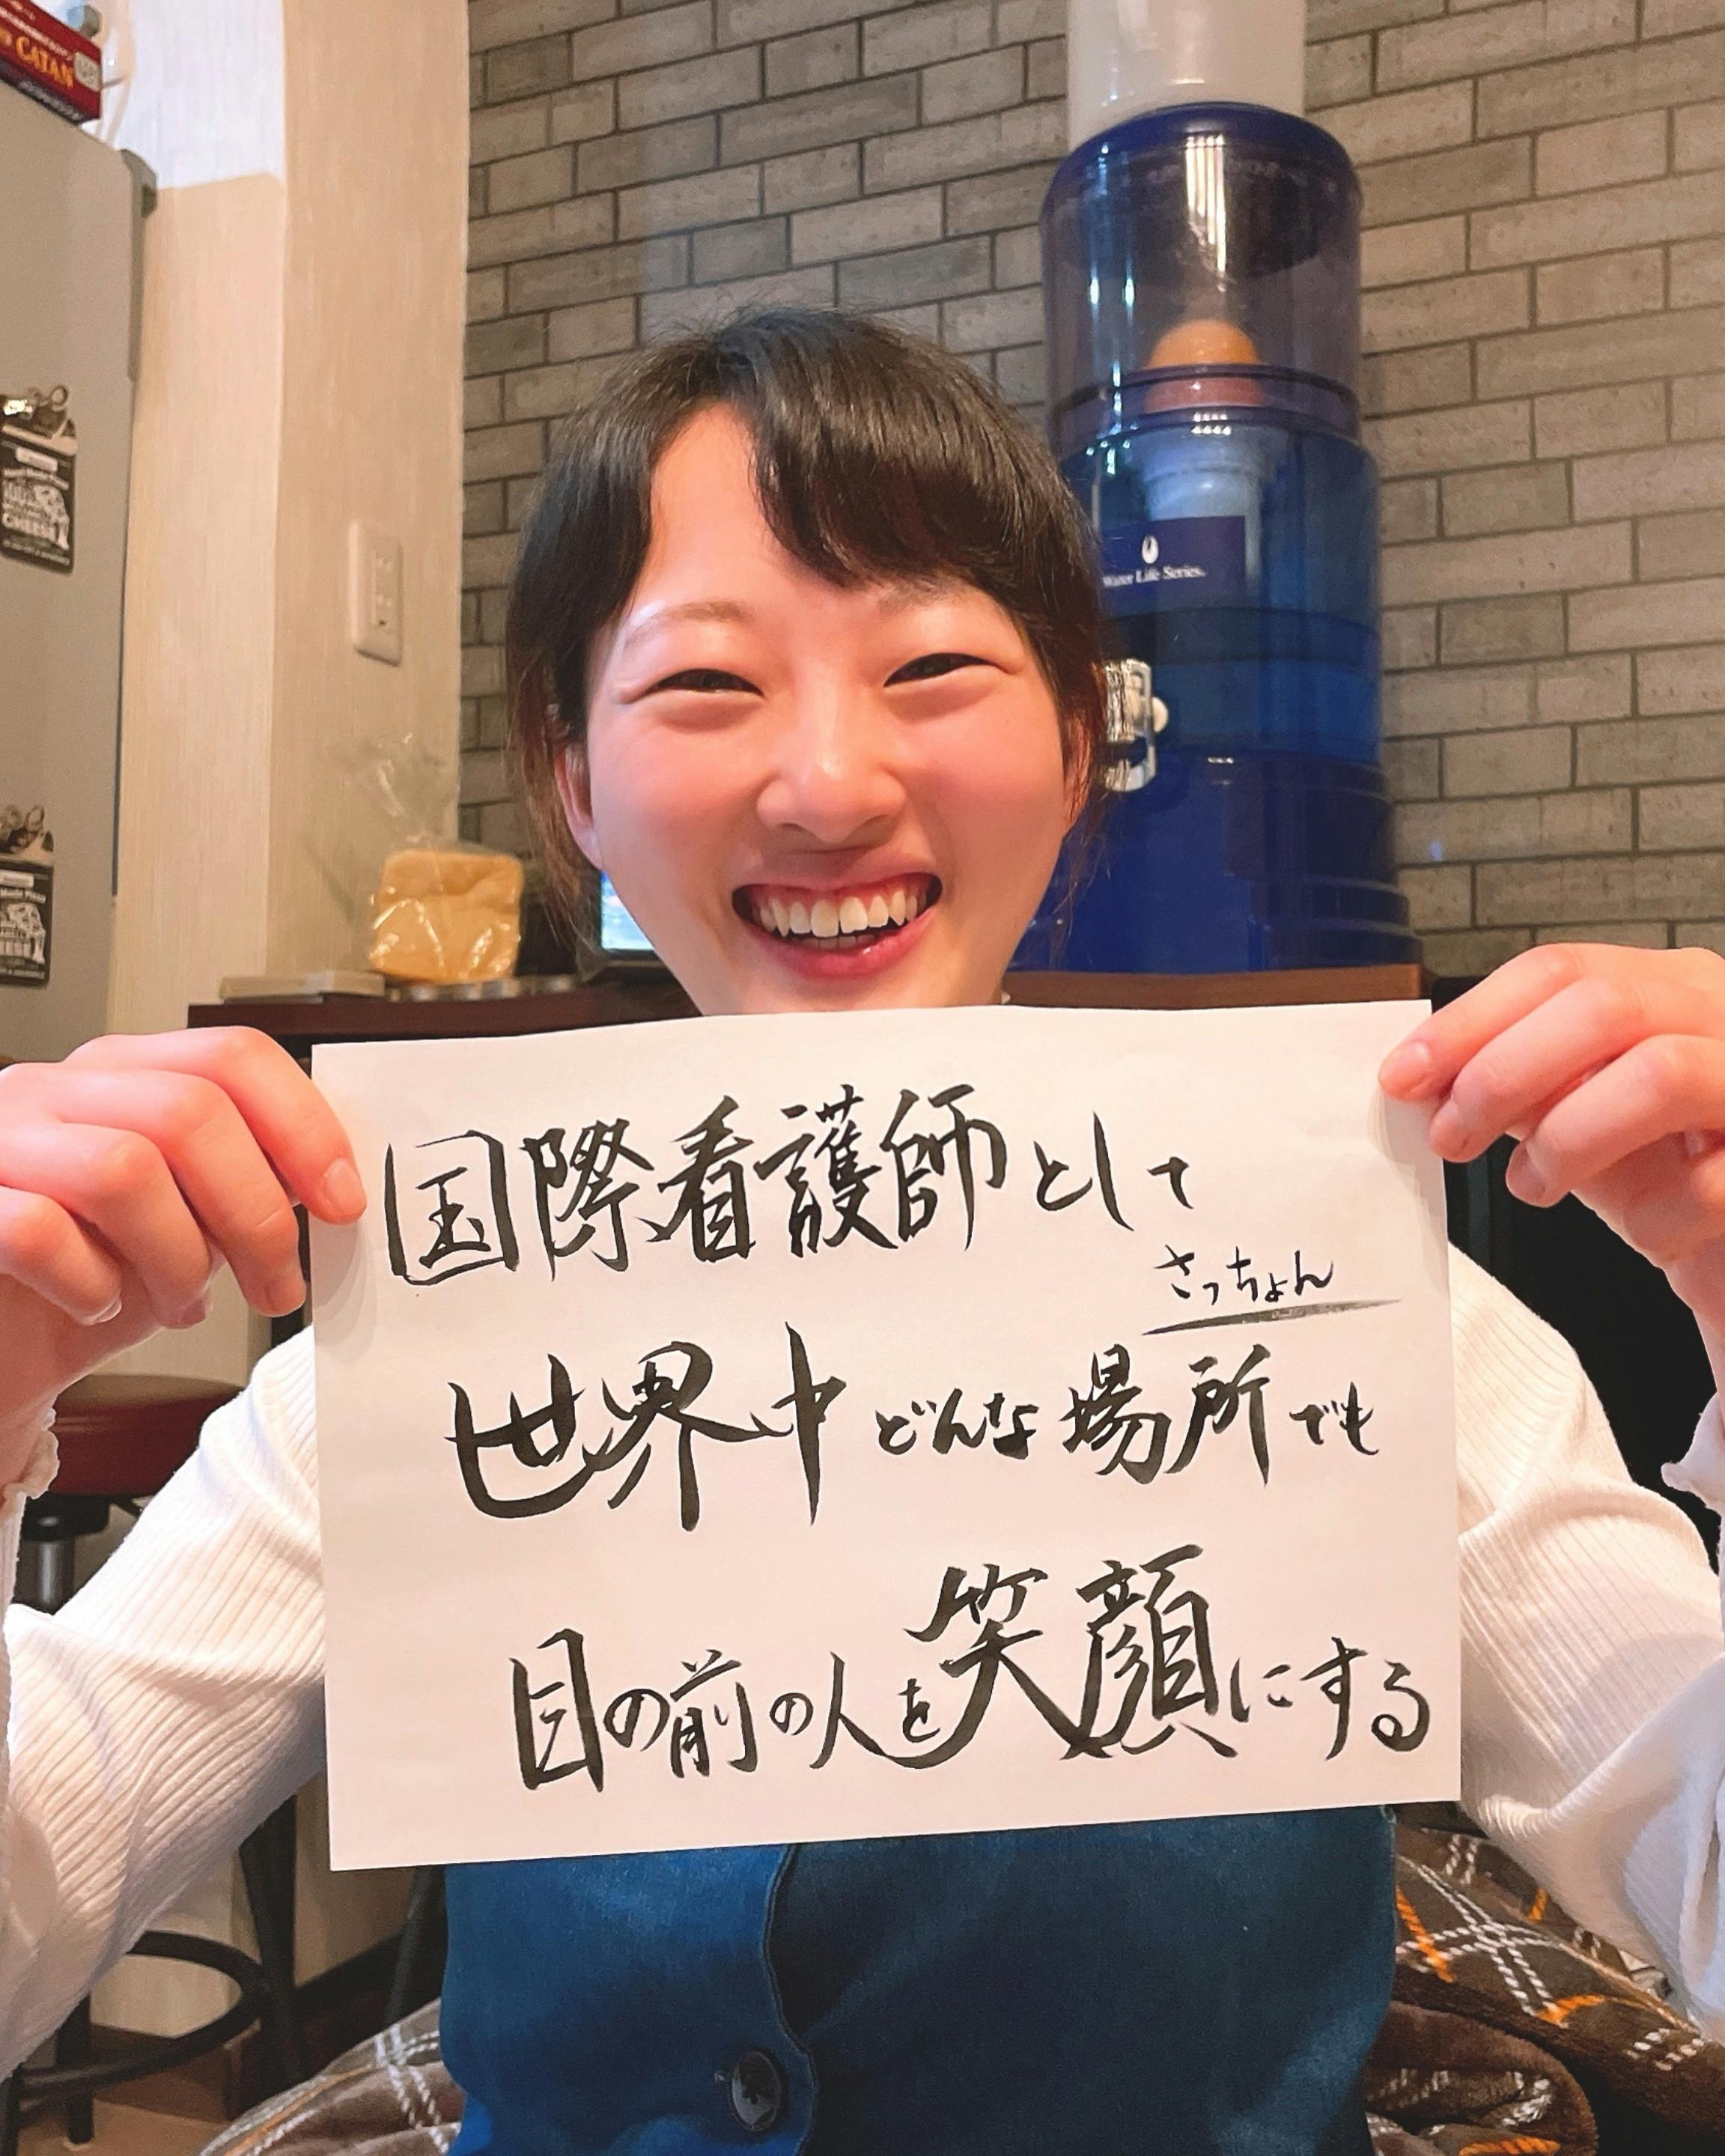 CATAN
CHEESE
Water Life Series.
国際看護師として
さっちょん
世界中どんな場所でも
目の前の人を笑顔にする